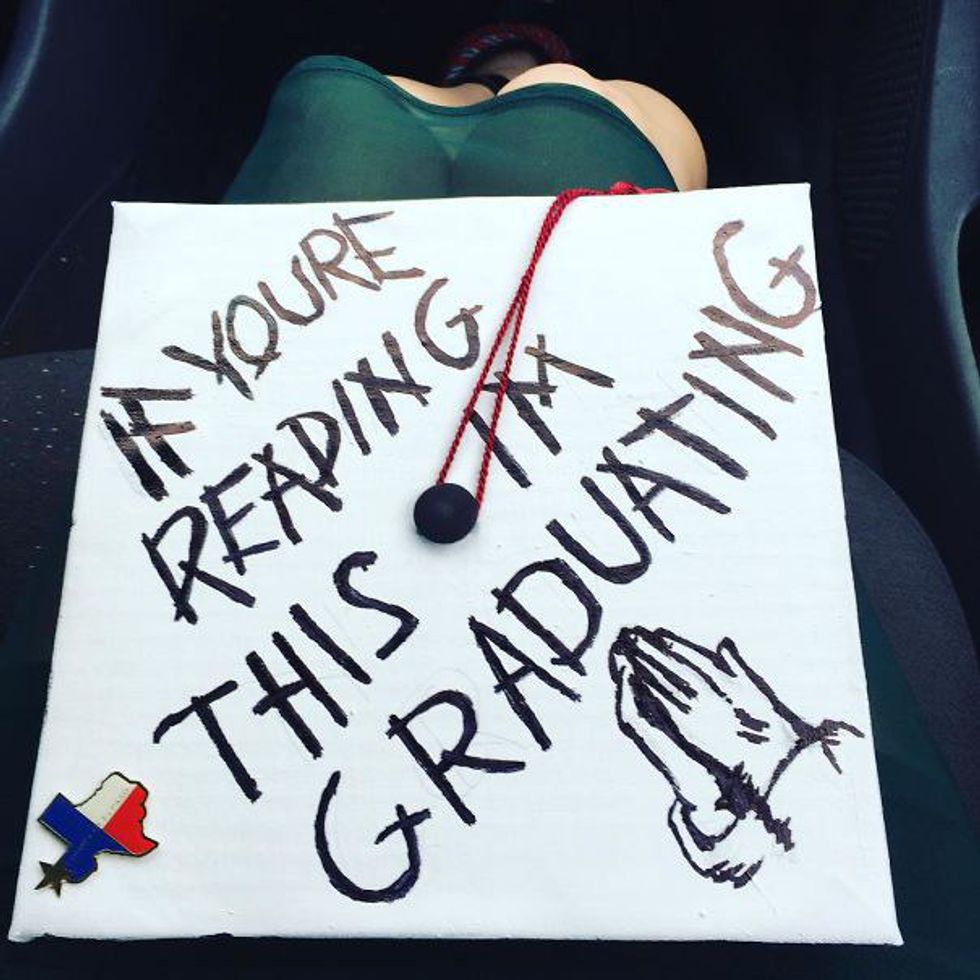 IF YOURE
READING
THIS IM
GRADUATING